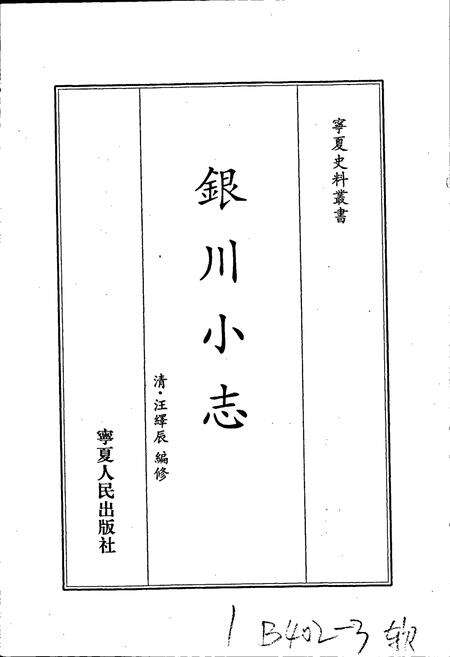 寧夏史料叢書
銀川小志
清·汪繹辰 編修
寧夏人民出版社
1 B402-3 软